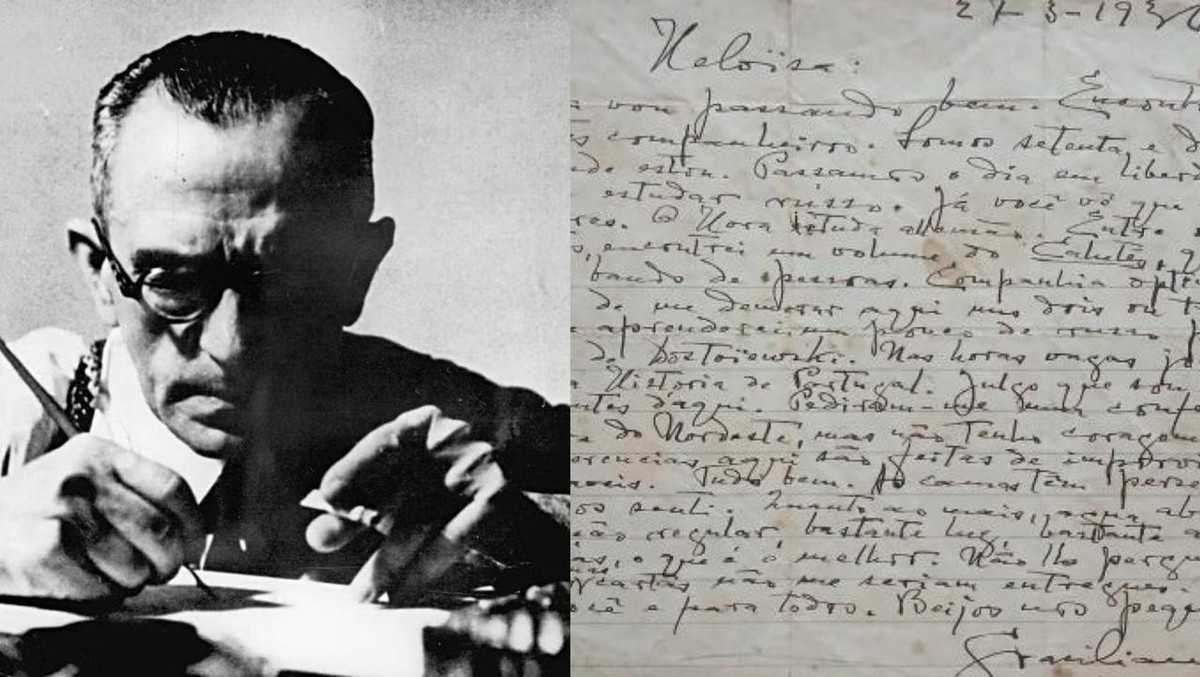 27-3-193
Heloïsa:
vou passando bem. Encont
companheiros. Somos setenta e d
estou. Passamos o dia em liberd
estudar russo. Já você vê que
res. O Hora estuda allemão. Entre
encontrei um volume do Caetés, q
bando de pessoas. Companhia opti
de me demorar aqui uns dois ou t
aprenderei um pouco de russo p
de Dostoiewski. Nas horas vagas jo
a Historia de Portugal. Julgo que sou
ntes d'aqui. Pediram-me uma conf
do Nordeste, mas não tenho corage
erencias aqui são feitas de improvi
Tudo bem. As camas têm perse
os senti. Quanto ao mais, agua ab
ção regular, bastante luz, bastante
as, o que é o melhor. Não lhe pergu
cartas não me seriam entregues.
cê e para todos. Beijos nos peque
Graciliano